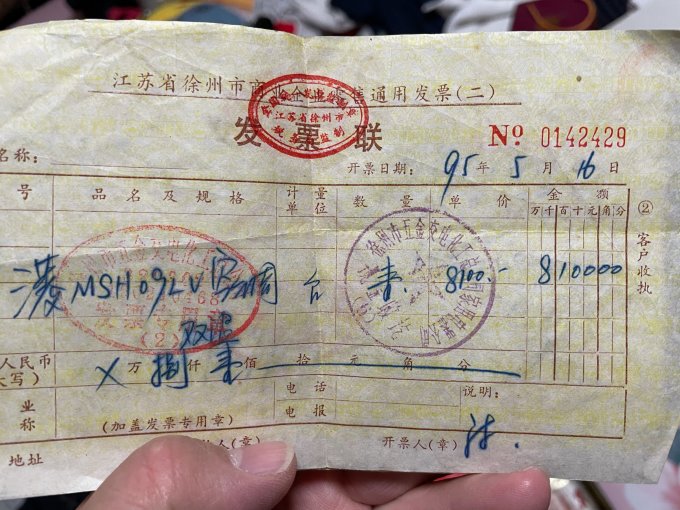 江苏省徐州市商业企业零售通用发票(二)
全国统一发票监制章
江苏省徐州市
发票联 Nº 0142429
名称: 开票日期: 95年5月16日
号 品名及规格 计量单位 数量 单价 金额
万千百十元角分
菱 MSH09LV 空调 台 8100- 810000
双温
发票专用章
(2)
②客户收执
人民币 × 万 捌 仟 壹 佰 拾 元 角 分
大写)
业 电话 说明:
称 (加盖发票专用章) 电报
地址 人(章) 开票人(章)